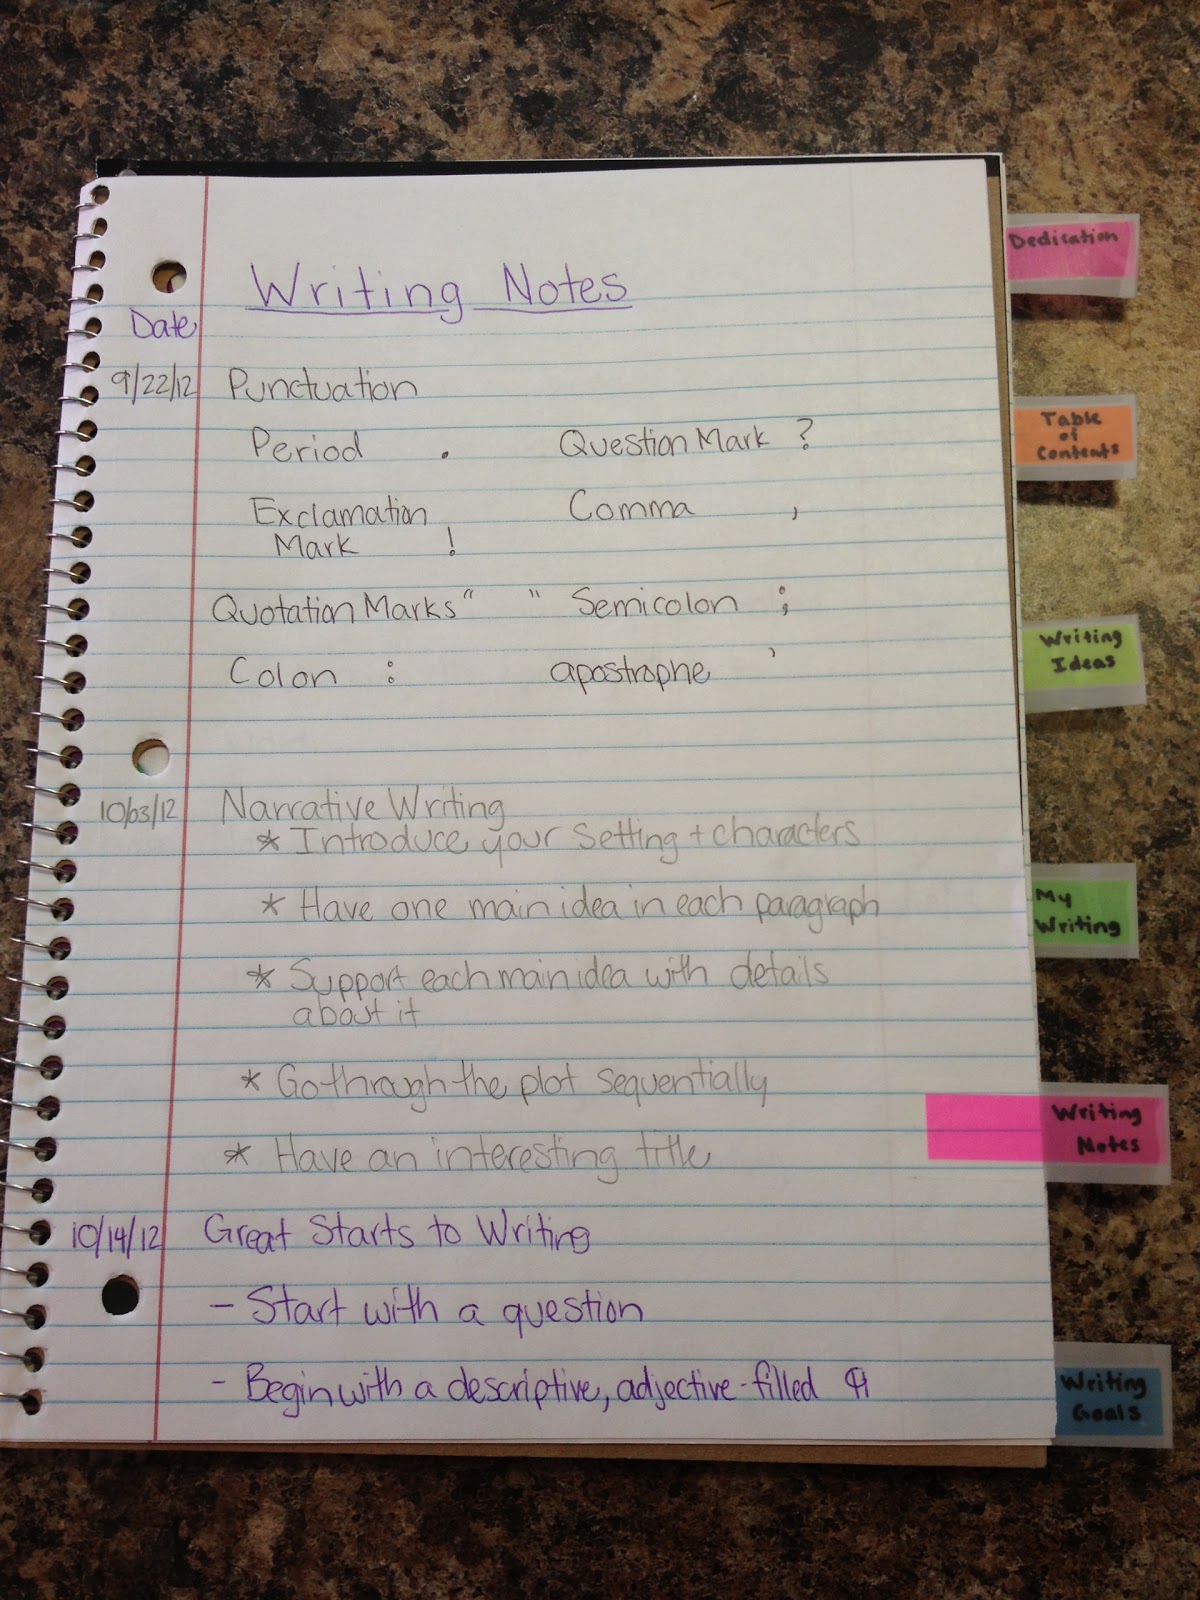 Writing Notes
Date
9/22/12 Punctuation
Period . Question Mark ?
Exclamation Comma ,
Mark !
Quotation Marks “ " Semicolon ;
Colon : apostrophe '
10/03/12 Narrative Writing
* Introduce your Setting + characters
* Have one main idea in each paragraph
* Support each main idea with details
about it
* Go through the plot sequentially
* Have an interesting title
10/14/12 Great Starts to Writing
- Start with a question
- Begin with a descriptive, adjective-filled ¶
Dedication
Table
of
Contents
Writing
Ideas
My
Writing
Writing
Notes
Writing
Goals